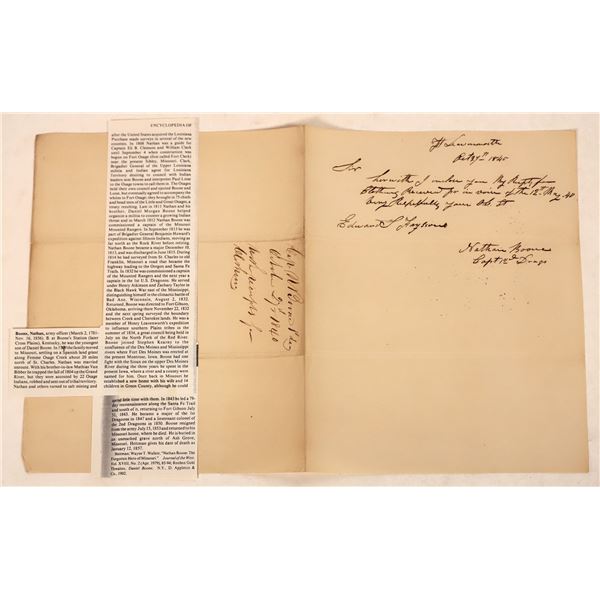 ENCYCLOPEDIA OF
after the United States acquired the Louisiana
Purchase made surveys in several of the new
counties. In 1808 Nathan was a guide for
Captain Eli B. Clemson and William Clark
until September 4 when construction was
begun on Fort Osage (first called Fort Clark) near
the present Sibley, Missouri. Clark,
Brigadier General of the Upper Louisiana
militia and Indian agent for Louisiana
Territory desiring to council with Indian
leaders sent Boone and interpreter Paul Lise
to the Osage towns to call them in. The Osages
held their own council and rejected Boone and
Lost, but eventually agreed to accompany the
whites to Fort Osage; they brought in 75 chiefs
and head men of the Little and Great Osages, a
treaty resulting. Late in 1811 Nathan and his
brother, Daniel Morgan Boone helped
organize a militia to counter a growing Indian
threat and in March 1812 Nathan Boone was
commissioned a captain of the Mounted
Rangers. In September 1813 he was
part of Brigadier General Benjamin Howard's
expedition against Illinois Indians, moving as
far north as the Rock River before retiring.
Nathan Boone became a major December 10,
1813, and was discharged in June 1815. During
1814 he had surveyed from St. Charles to old
Franklin, Missouri a road that became the
highway leading to the Oregon and Santa Fe
Trails. In 1832 he was commissioned a captain
of the Mounted Rangers and the next year a
captain in the 1st U.S. Dragoons. He served
under Henry Atkinson and Zachary Taylor in
the Black Hawk War east of the Mississippi,
distinguishing himself in the climactic battle of
Bad Axe, Wisconsin, August 2, 1832.
Returned, Boone was directed to Fort Gibson,
Oklahoma, arriving there November 22, 1832
and the next spring surveyed the boundary
between Creek and Cherokee lands. He was a
member of Henry Leavenworth's expedition
to influence southern Plains tribes in the
summer of 1834, a great council being held in
July on the North Fork of the Red River.
Boone joined Stephen Kearny to the
confluence of the Des Moines and Mississippi
rivers where Fort Des Moines was erected at
the present Montrose, Iowa. Boone had one
fight with the Sioux on the upper Des Moines
river there and over the years he spent in the
present Iowa, where a river and a county were
named for him. Once back in Missouri he
established a new home with his wife and 14
children in Green County, although he could
Boone, Nathan, army officer (March 2, 1781-
Nov. 16, 1856). B. at Boone's Station (later
Cross Plains), Kentucky, he was the youngest
son of Daniel Boone. In 1799 the family moved
to Missouri, settling on a Spanish land grant
along Femme Osage Creek about 20 miles
north of St. Charles. Nathan was married
enroute. With his brother-in-law Mathias Van
Bibber he trapped the fall of 1804 on the Grand
River, but they were accosted by 22 Osage
Indians, robbed and sent out of tribal territory.
Nathan and others turned to salt mining and
spend little time with them. In 1843 he led a 79-
day reconnaissance along the Santa Fe Trail
and south of it, returning to Fort Gibson July
31, 1843. He became a major of the 1st
Dragoons in 1847 and a lieutenant colonel of
the 2nd Dragoons in 1850. Boone resigned
from the army July 15, 1853 and returned to his
Missouri home, where he died. He is buried in
an unmarked grave north of Ash Grove,
Missouri. Heitman gives his date of death as
January 12, 1857.
Heitman; Wayne T. Walker, "Nathan Boone: The
Forgotten Hero of Missouri." Journal of the West,
Vol. XVIII, No. 2 (Apr. 1979), 85-94; Reuben Gold
Thwaites, Daniel Boone. N.Y., D. Appleton &
Co., 1902.
Ft Leavenworth
Oct 27th 1840
Sir
herewith I inclose you My Receipt for
Clothing Received for in voice of the 12th May 40
being Respectfully your Ob St
Nathan Boone
Capt 1st Drags